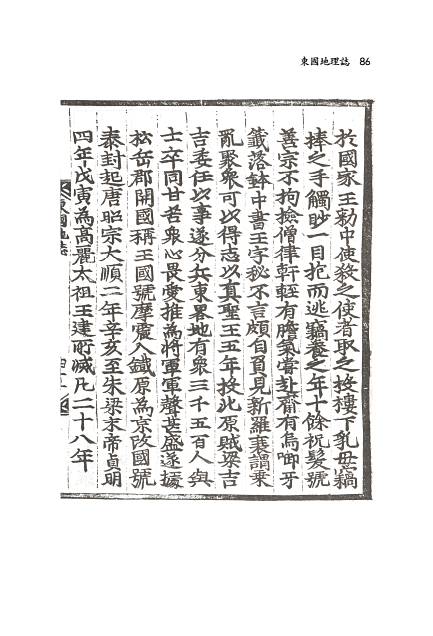 東國地理誌 86
於國家王勑中使殺之使者取之投樓下乳母竊
捧之手觸眇一目抱而逃竊養之年十餘祝髮號
善宗不拘撿僧律軒輊有膽氣嘗赴齋有烏啣牙
籤落鉢中書王字秘不言頗自負見新羅衰謂乗
亂聚衆可以得志以真聖王五年投北原賊梁吉
吉委任以事遂分兵東畧地有衆三千五百人與
士卒同甘苦衆心畏愛推為將軍軍聲甚盛遂據
松岳郡開國稱王國號摩震入鐵原為京改國號
泰封起唐昭宗大順二年辛亥至朱梁末帝貞明
四年戊寅為高麗太祖王建所滅凡二十八年